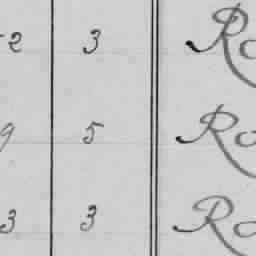 2 3 Ro
9 5 Ro
3 3 Ro